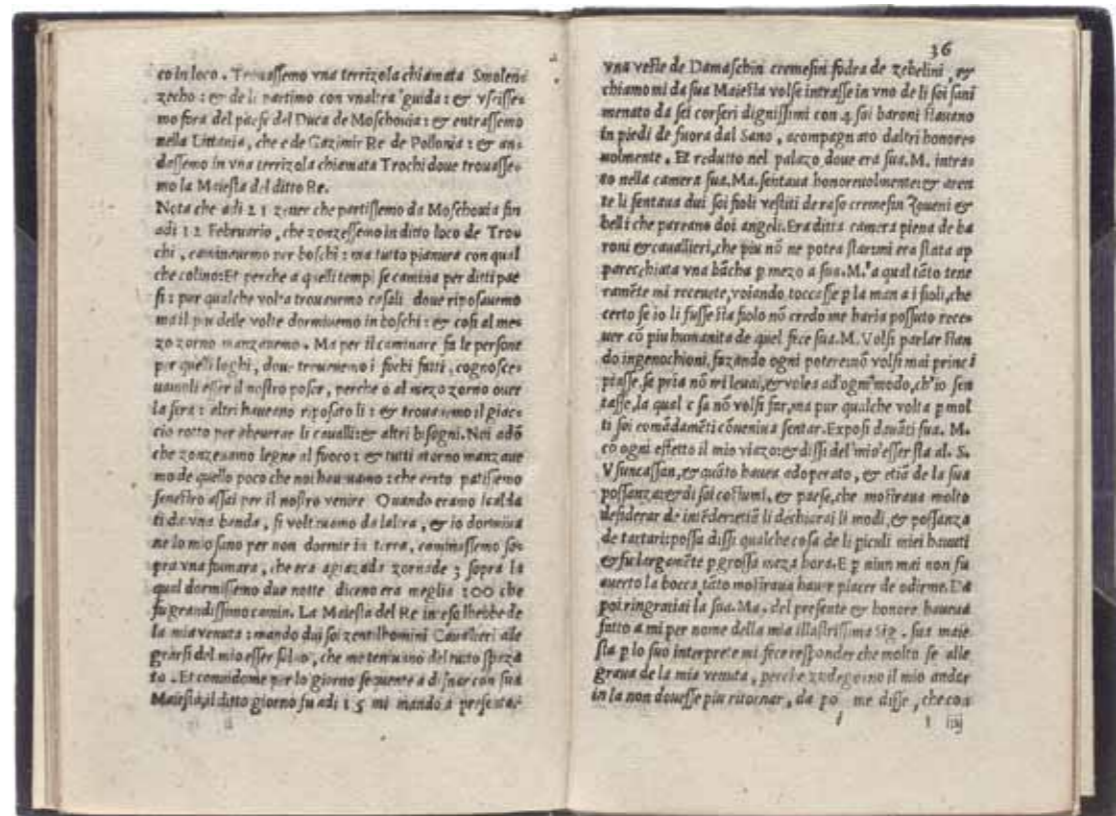 co in loco. Trouassemo vna terrizola chiamata Smolens
zecho: & de li partimo con vnaltra guida: & vscisse-
mo fora del paese del Duca de Moschouia: & entrassemo
nella Littania, che e de Cazimir Re de Pollonia: & an-
dassemo in vna terrizola chiamata Trochi doue trouasse-
mo la Maiesta del ditto Re.
Nota che adi 21 zener che partissemo da Moschouia fin
adi 12 Februario, che zonzessemo in ditto loco de Tro
chi, caminauemo per boschi: ma tutto pianura con qual
che colino: Et perche a quelli tempi se camina per ditti pae
si: pur qualche volta trouauemo casali doue riposauemo
ma il piu delle volte dormiuemo in boschi: & cosi al me-
zo zorno manzauemo. Ma per il caminare fa le persone
per quelli loghi, doue trouauemo i fochi fatti, cognosce-
uamoli esser il nostro poser, perche o al mezo zorno ouer
la sira: altri haueano riposato li: & trouauemo il giac-
cio rotto per abeurar li caualli: & altri bisogni. Noi adō
che zonzeuamo legne al fuoco: & tutti atorno manzaue
mo de quello poco che noi hauuamo: che certo patissemo
senestro assai per il nostro venire Quando eramo scalda
ti da vna banda, si voltauamo da laltra, & io dormiua
ne lo mio sano per non dormir in terra, caminassemo so-
pra vna fiumara, che era agiazada zornade 3 sopra la
qual dormissemo due notte diceno era meglia 300 che
fu grandissimo camin. La Maiesta del Re inteso lhebbe de
la mia venuta: mando dui soi zentilhomini Caualieri alle
grarsi del mio esser saluo, che me teniuano del tutto spaza
to. Et conuidome per lo giorno sequente a disnar con sua
Maiesta, il ditto giorno fu adi 15 mi mando a presentar
36
vna veste de Damaschin cremesini fodra de zebelini, &
chiamomi da sua Maiesta volse intrasse in vno de li soi sani
menato da sei corseri dignissimi con 4 soi baroni stauano
in piedi de fuora dal Sano, acompagnato daltri honore-
uolmente. Et redutto nel palazo doue era sua. M. intra-
to nella camera sua. Ma. sentaua honoreuolmente: & aren
te li sentaua dui soi fioli vestiti de raso cremesin zoueni &
belli che pareano doi angeli. Era ditta camera piena de ba
roni & cauallieri, che piu nō ne potea starui era stata ap
parecchiata vna bācha p mezo a sua. M. a qual tāto tene
ramēte mi receuete, voiando toccasse p la man a i fioli, che
certo se io li fusse sta fiolo nō credo me haria possuto rece-
uer cō piu humanita de quel fece sua. M. Volsi parlar stan
do ingenochioni, fazando ogni potere: nō volsi mai princi
piasse, se pria nō mi leuai, & volea ad ogni modo, ch'io sen
tasse, la qual c sa nō volsi far, ma pur qualche volta p mol
ti soi comādamēti cōueniua sentar. Exposi dauāti sua. M.
cō ogni effetto il mio viazo: & dissi del mio esser sta al. S.
Vsuncassan, & quāto hauea adoperato, & etiā de la sua
possanza: & di soi costumi, & paese, che mostraua molto
desiderar de intēder: etiā li dechiarai li modi, & possanza
de tartari: possa dissi qualche cosa de li piculi miei hauuti
& fu largamēte p grossa meza hora. E p niun mai non fu
auerto la bocca, tāto mostraua hauer piacer de odirme. Da
poi ringratiai la sua. Ma. del presente & honore haueua
fatto a mi per nome della mia illustrissima Sig. sua maie
sta p lo suo interprete mi fece responder che molto se alle
graua de la mia venuta, perche zudegorno il mio andar
in la non douesse piu ritornar, da po me disse, che con